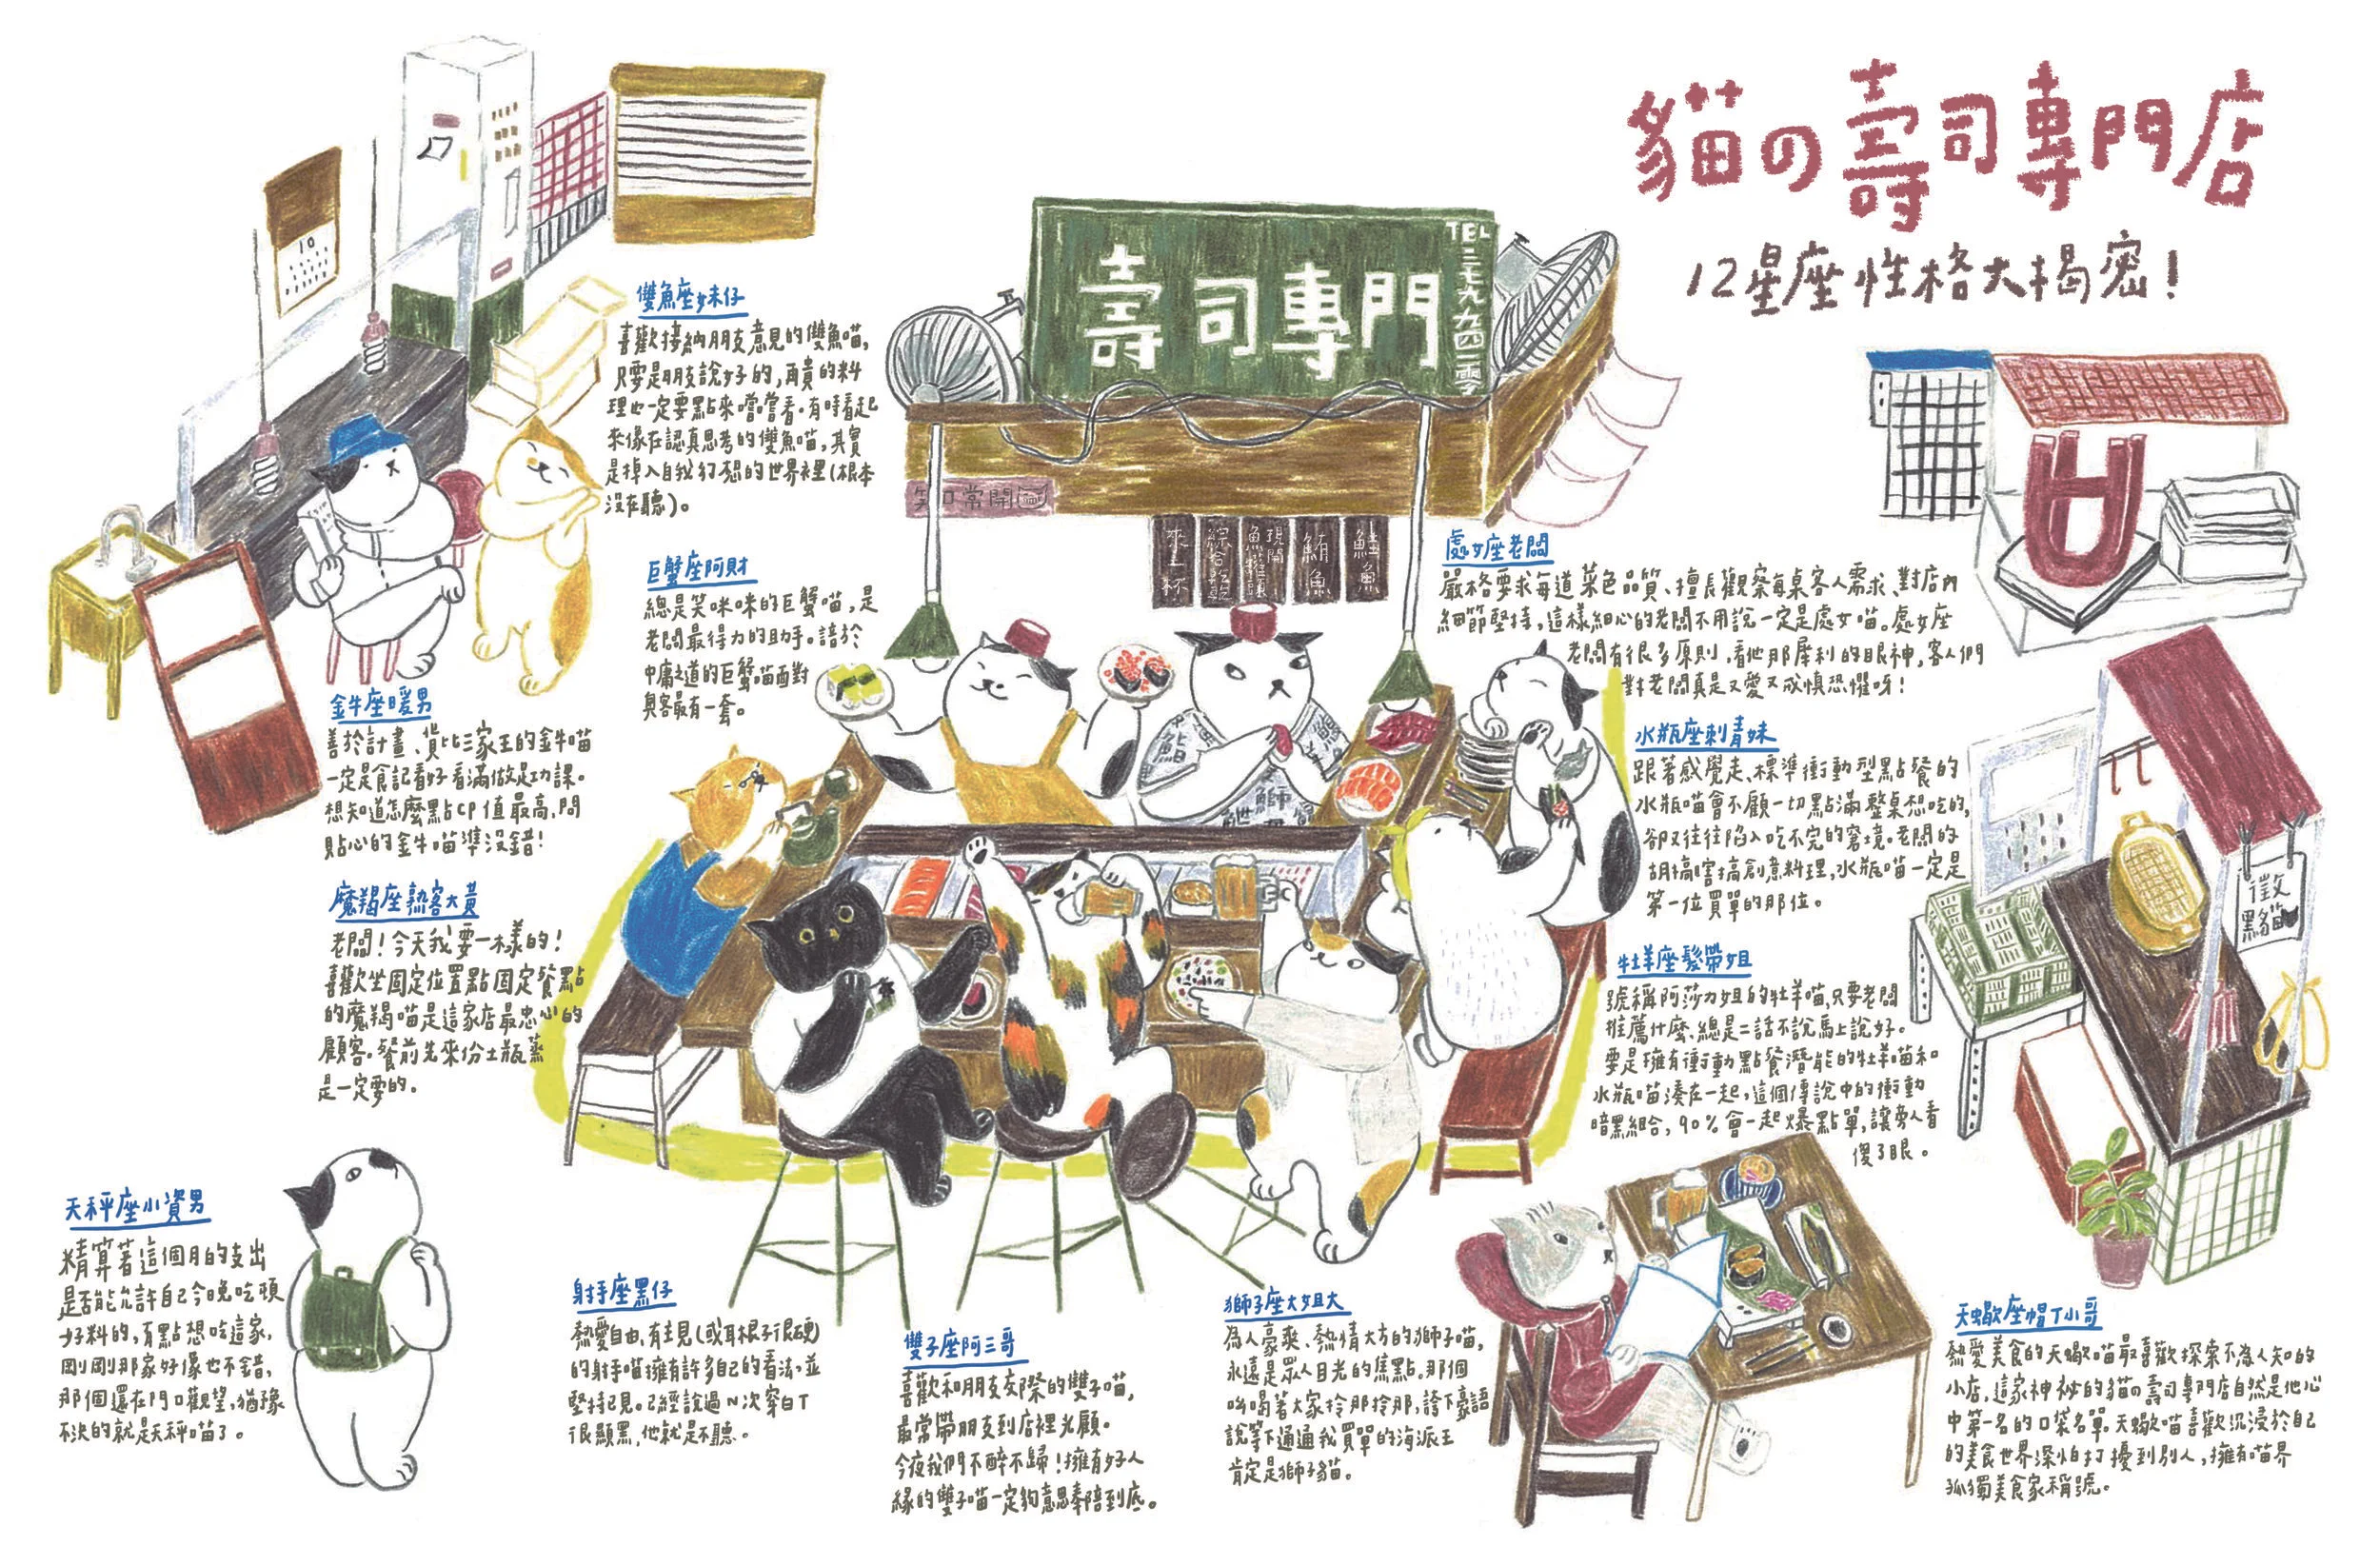 貓の壽司專門店
12星座性格大揭密!
10
壽司專門
TEL二三七九九四二零
笑口常開
來一杯
綜合乾
現開
鮪魚
鮭魚
雙魚座妹仔
喜歡接納朋友意見的雙魚喵,
只要是朋友說好的,再貴的料
理也一定要點來嚐嚐看。有時看起
來像在認真思考的雙魚喵,其實
是掉入自我幻想的世界裡(根本
沒在聽)。
巨蟹座阿財
總是笑咪咪的巨蟹喵,是
老闆最得力的助手。諳於
中庸之道的巨蟹喵面對
奧客最有一套。
處女座老闆
嚴格要求每道菜色品質、擅長觀察每桌客人需求、對店內
細節堅持,這樣細心的老闆不用說一定是處女喵。處女座
老闆有很多原則,看他那犀利的眼神,客人們
對老闆真是又愛又戒慎恐懼呀!
金牛座暖男
善於計畫、貨比三家王的金牛喵
一定是食記看好看滿做足功課。
想知道怎麼點CP值最高,問
貼心的金牛喵準沒錯!
水瓶座刺青妹
跟著感覺走、標準衝動型點餐的
水瓶喵會不顧一切點滿整桌想吃的,
卻又往往陷入吃不完的窘境。老闆的
胡搞瞎搞創意料理,水瓶喵一定是
第一位買單的那位。
魔羯座熟客大黃
老闆!今天我要一樣的!
喜歡坐固定位置點固定餐點
的魔羯喵是這家店最忠心的
顧客。餐前先來份土瓶蒸
是一定要的。
徵
黑貓
牡羊座髮帶姐
號稱阿莎力姐的牡羊喵,只要老闆
推薦什麼、總是二話不說馬上說好。
要是擁有衝動點餐潛能的牡羊喵和
水瓶喵湊在一起,這個傳說中的衝動
暗黑組合,90%會一起爆點單,讓旁人看
傻了眼。
天秤座小資男
精算著這個月的支出
是否能允許自己今晚吃頓
好料的,有點想吃這家,
剛剛那家好像也不錯,
那個還在門口觀望,猶豫
不決的就是天秤喵了。
射手座黑仔
熱愛自由、有主見(或耳根子很硬)
的射手喵擁有許多自己的看法,並
堅持己見。已經說過N次穿白T
很顯黑,他就是不聽。
雙子座阿三哥
喜歡和朋友交際的雙子喵,
最常帶朋友到店裡光顧。
今夜我們不醉不歸!擁有好人
緣的雙子喵一定夠意思奉陪到底。
獅子座大姐大
為人豪爽、熱情大方的獅子喵,
永遠是眾人目光的焦點。那個
吆喝著大家拎那拎那,誇下豪語
說等下通通我買單的海派王
肯定是獅子貓。
天蠍座帽T小哥
熱愛美食的天蠍喵最喜歡探索不為人知的
小店,這家神祕的貓の壽司專門店自然是他心
中第一名的口袋名單。天蠍喵喜歡沉浸於自己
的美食世界深怕打擾到別人,擁有喵界
孤獨美食家稱號。